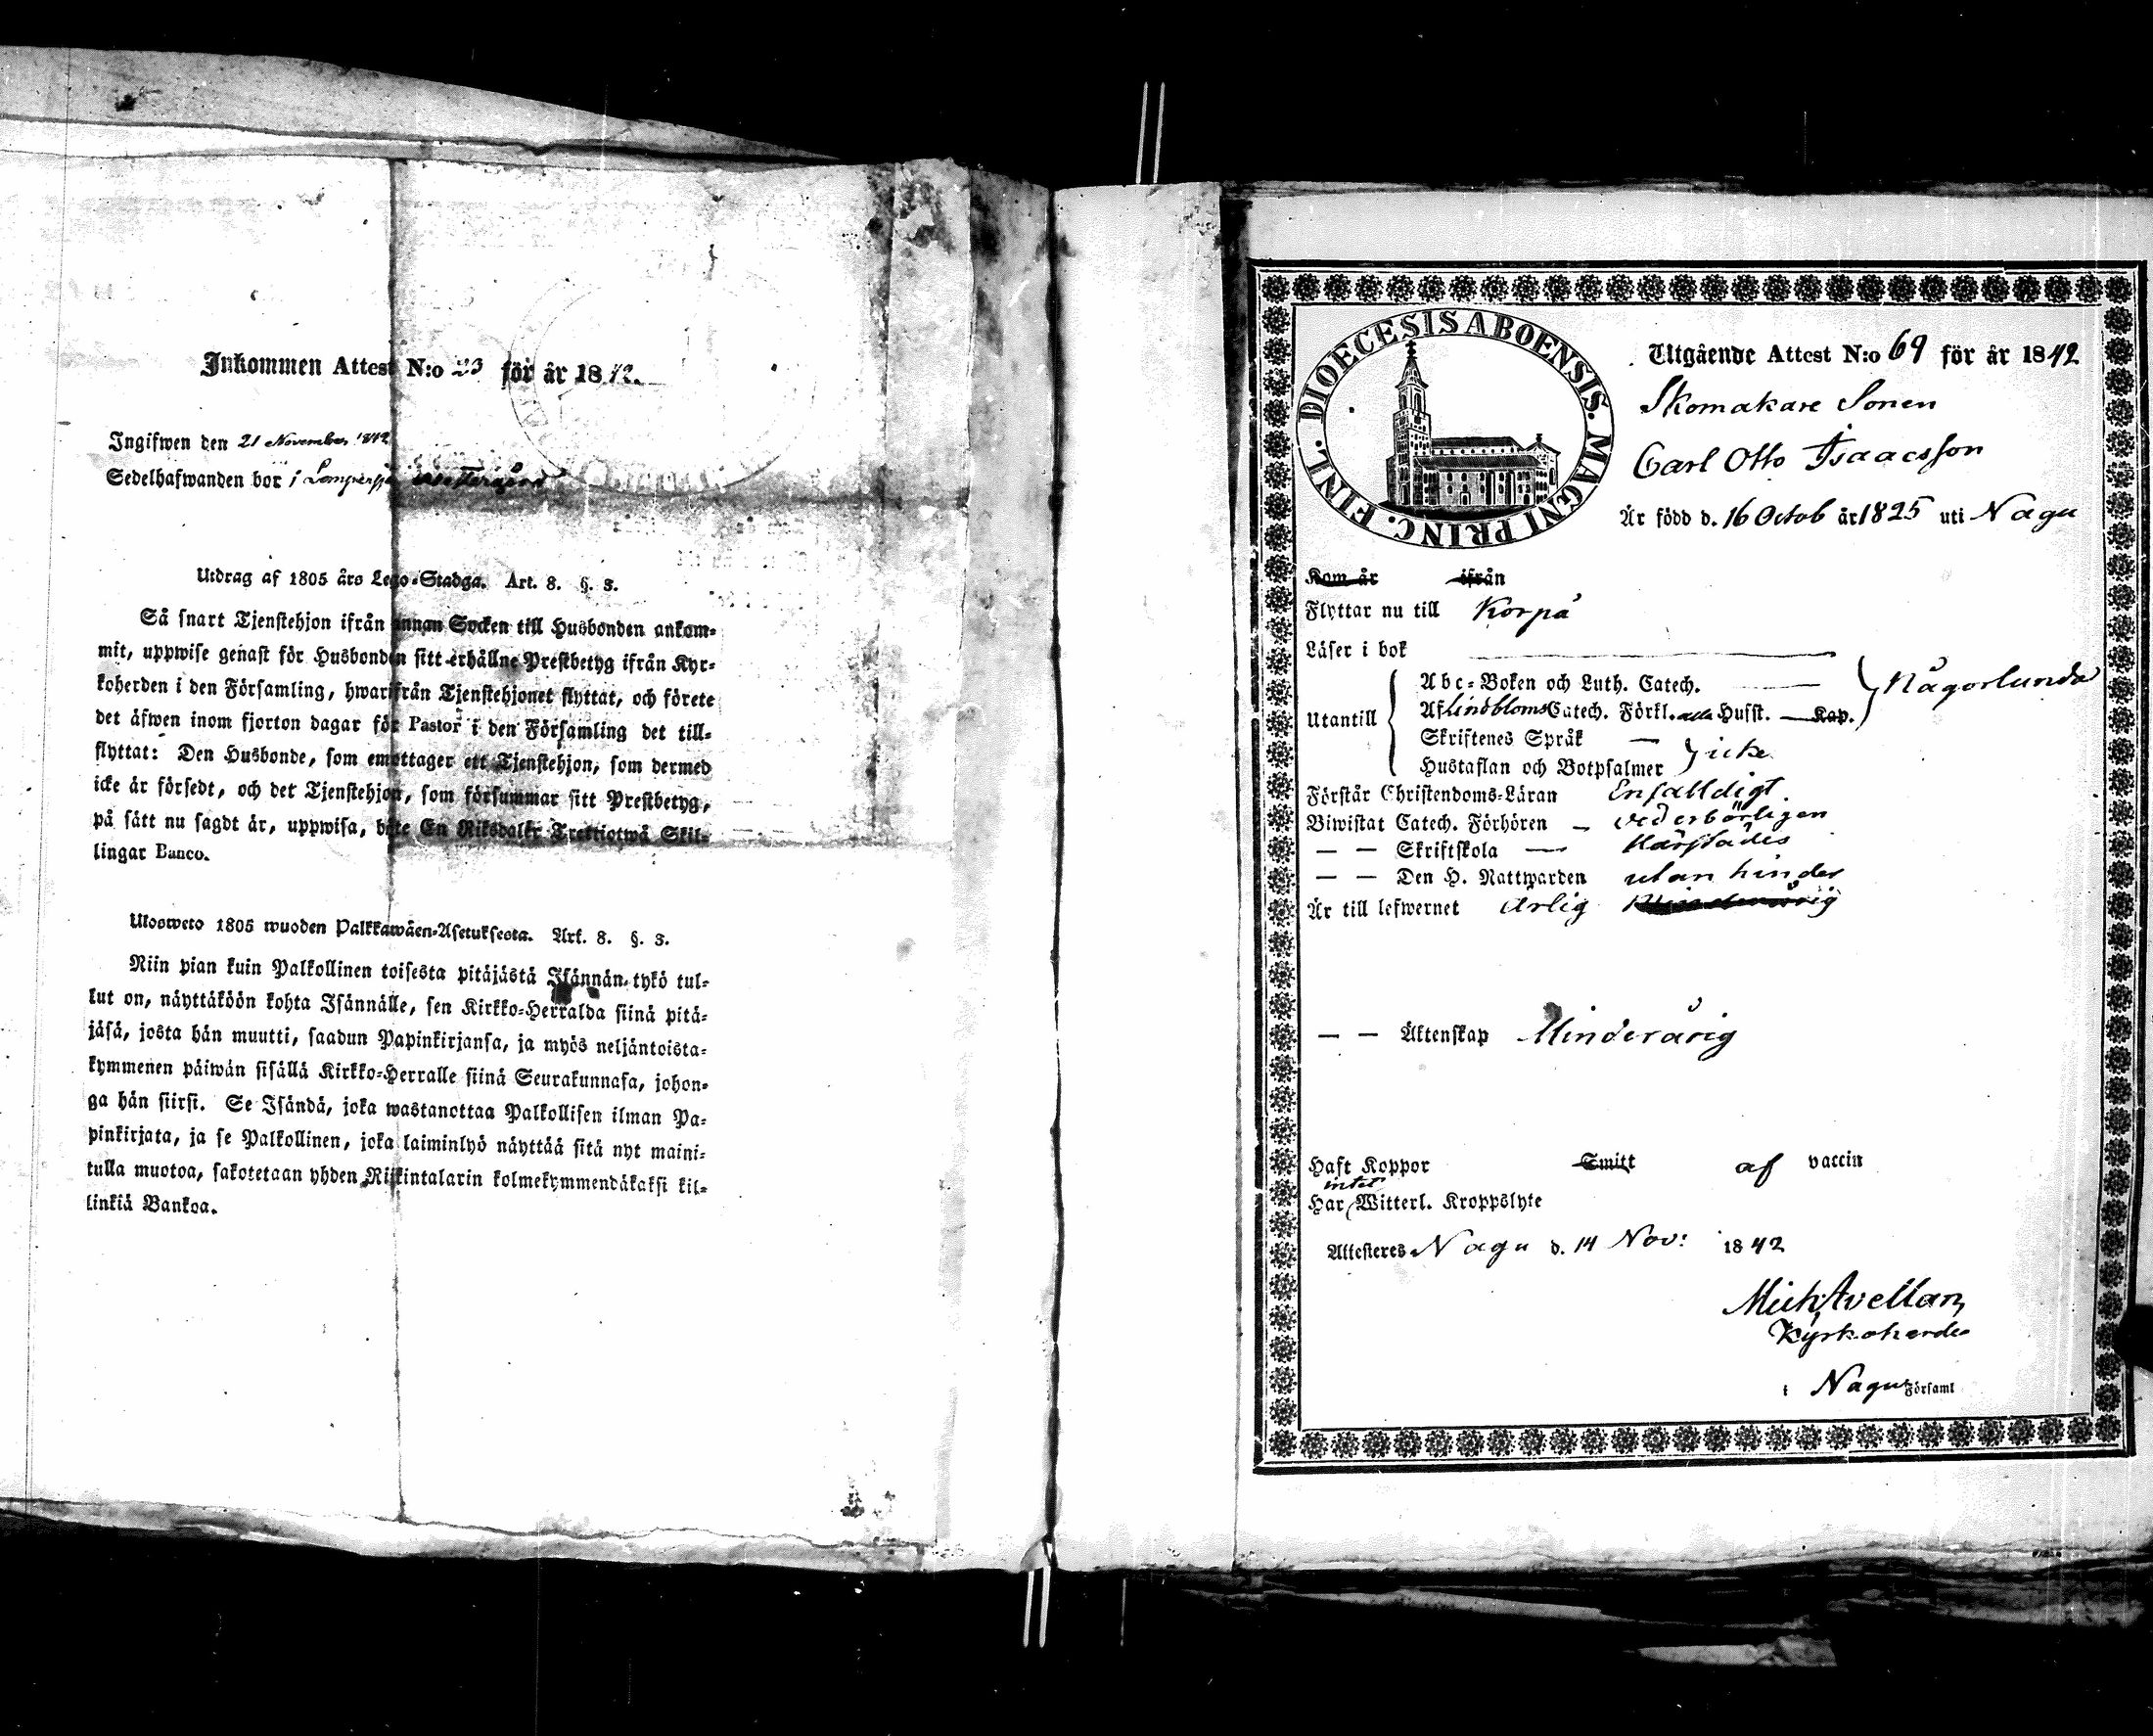 Inkommen Attest N:o 23 för år 1842.
Ingifwen den 21 November 1842
Sedelhafwanden bor i
Utdrag af 1805 års Lego-Stadga. Art. 8. §. 3.
Så snart Tjenstehjon ifrån annan Socken till Husbonden ankom-
mit, uppwise genast för Husbonden sitt erhållne Prestbetyg ifrån Kyr-
koherden i den Församling, hwarifrån Tjenstehjonet flyttat, och förete
det äfwen inom fjorton dagar för Pastor i den Församling det till-
flyttat: Den Husbonde, som emottager ett Tjenstehjon, som dermed
icke är försedt, och det Tjenstehjon, som försummar sitt Prestbetyg,
på sätt nu sagdt är, uppwisa, böte En Riksdaler Trettiotwå Skil-
lingar Banco.
Ulosweto 1805 wuoden Palkkawäen-Asetuksesta. Art. 8. §. 3.
Niin pian kuin Palkollinen toisesta pitäjästä Isännän tykö tul-
lut on, näyttäköön kohta Isännälle, sen Kirkko-Herralda siinä pitä-
jäsä, josta hän muutti, saadun Papinkirjansa, ja myös neljäntoista-
kymmenen päiwän sisällä Kirkko-Herralle siinä Seurakunnasa, johon-
ga hän siirsi. Se Isändä, joka wastanottaa Palkollisen ilman Pa-
pinkirjata, ja se Palkollinen, joka laiminlyö näyttää sitä nyt maini-
tulla muotoa, sakotetaan yhden Riikintalarin kolmekymmendäkaksi kil-
linkiä Bankoa.
DIOECESIS ABOENSIS. MAGNI PRINC. FINL.
Utgående Attest N:o 69 för år 1842
Skomakare Sonen
Carl Otto Isaacsson
Är född d. 16 Octob år 1825 uti Nagu
Kom år ifrån
Flyttar nu till Korpå
Läser i bok
Utantill
Abc-Boken och Luth. Catech.
Af Lindbloms Catech. Förkl. alla Husst. — Kap.
Någorlunda
Skriftenes Språk —
Hustaflan och Botpsalmer
icke
Förstår Christendoms-Läran Enfalldigt
Biwistat Catech. Förhören — vederbörligen
— — Skriftskola —
— — Den H. Nattwarden utan hinder
Är till lefwernet Ärlig
— — Äktenskap Minderårig
Haft Koppor Smitt af vaccin
intet
Har Witterl. Kroppslyte
Attesteres Nagu d. 14 Nov: 1842
Mich Avellan
Kyrkoherde
i Nagu Församl